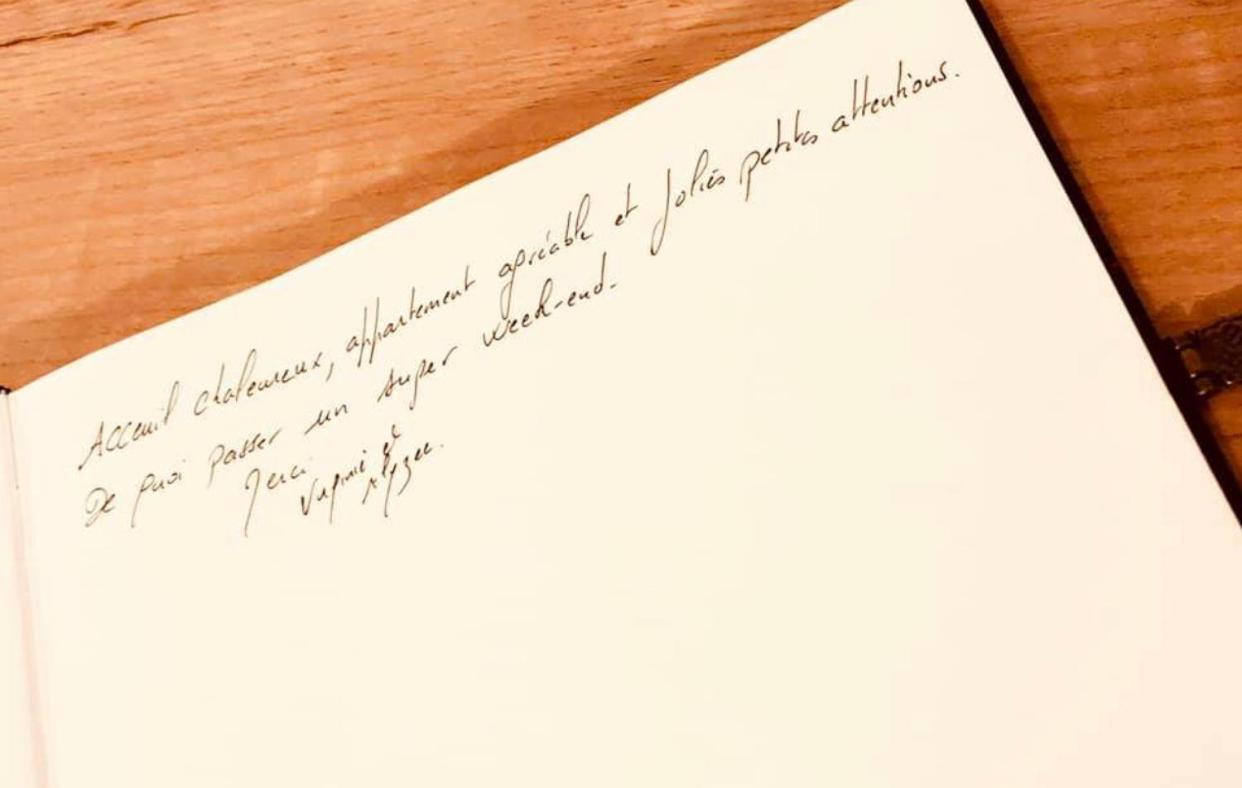 Acceuil chaleureux, appartement agréable et jolies petites attentions.
De quoi passer un super week-end.
Merci
Virginie et